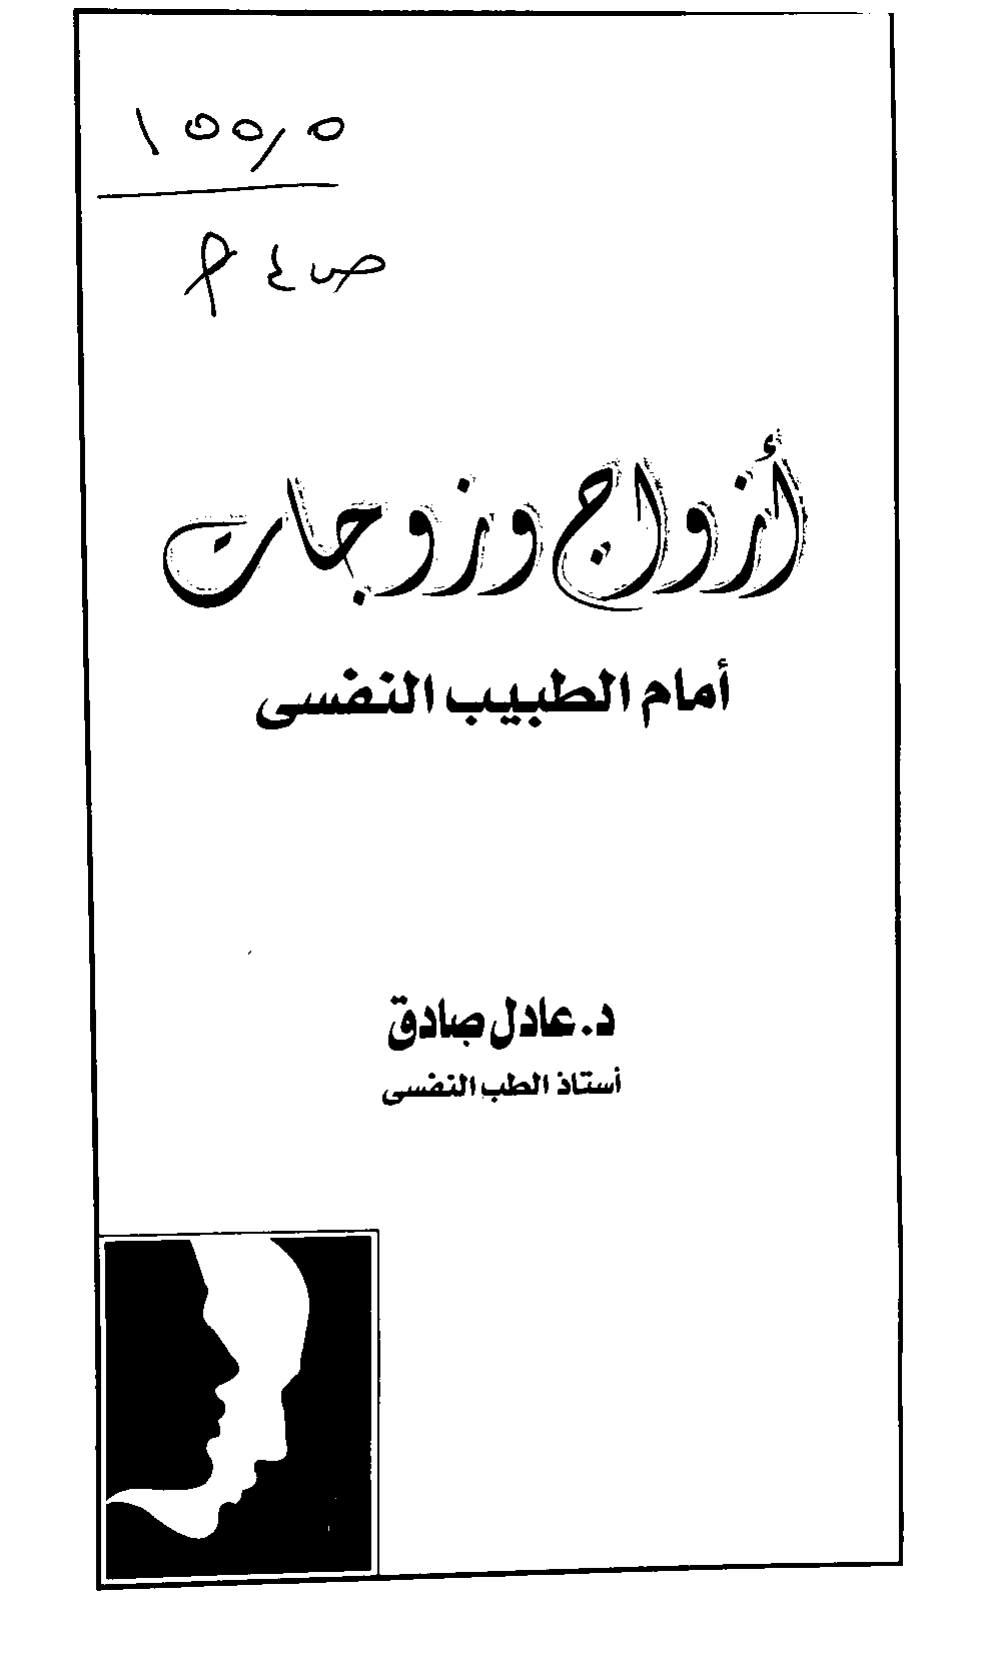 ١٥٥,٥
ص ع م
أزواج وزوجات
أمام الطبيب النفسى
د. عادل صادق
أستاذ الطب النفسى